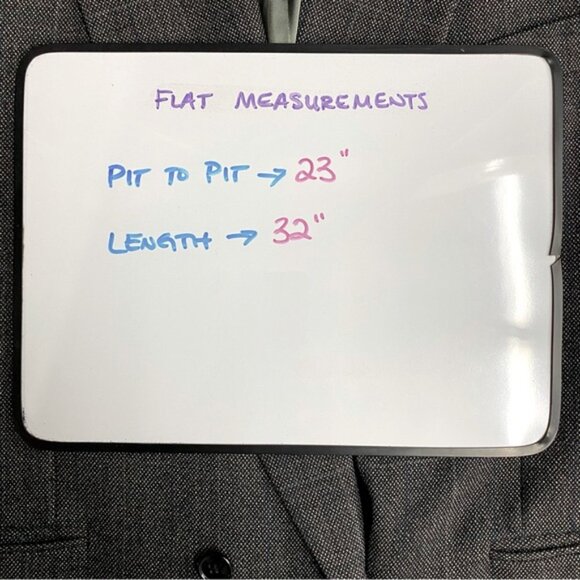 FLAT MEASUREMENTS
PIT TO PIT → 23"
LENGTH → 32"